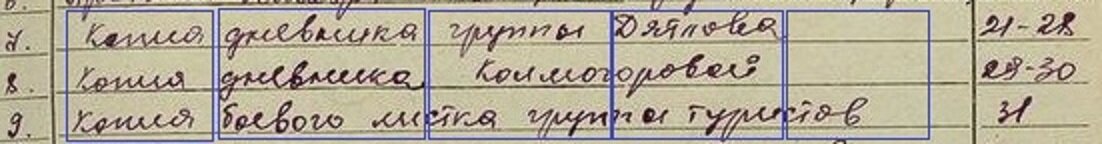 7. Копия дневника группы Дятлова 21-28
8. Копия дневника Колмогоровой 29-30
9. Копия боевого листка группы туристов 31